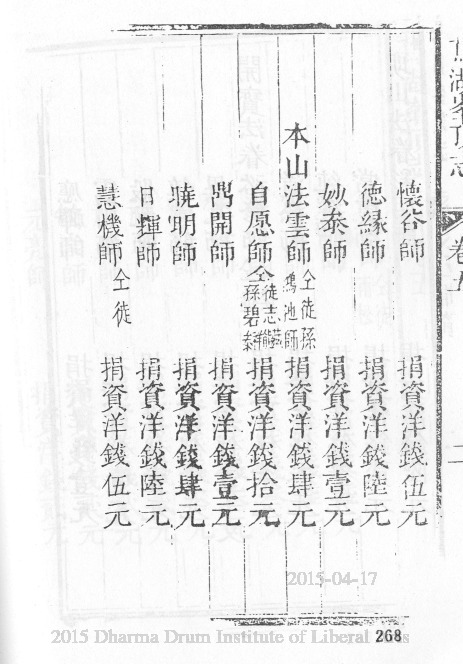 卷五
二
懷谷師 捐資洋錢伍元
德緣師 捐資洋錢陸元
妙泰師 捐資洋錢壹元
本山法雲師 仝徒孫鴻池師 捐資洋錢肆元
自愿師 仝徒志 孫碧泰 捐資洋錢拾元
開師 捐資洋錢壹元
曉明師 捐資洋錢肆元
日輝師 捐資洋錢陸元
慧機師 仝徒 捐資洋錢伍元
2015-04-17
2015 Dharma Drum Institute of Liberal Arts
268